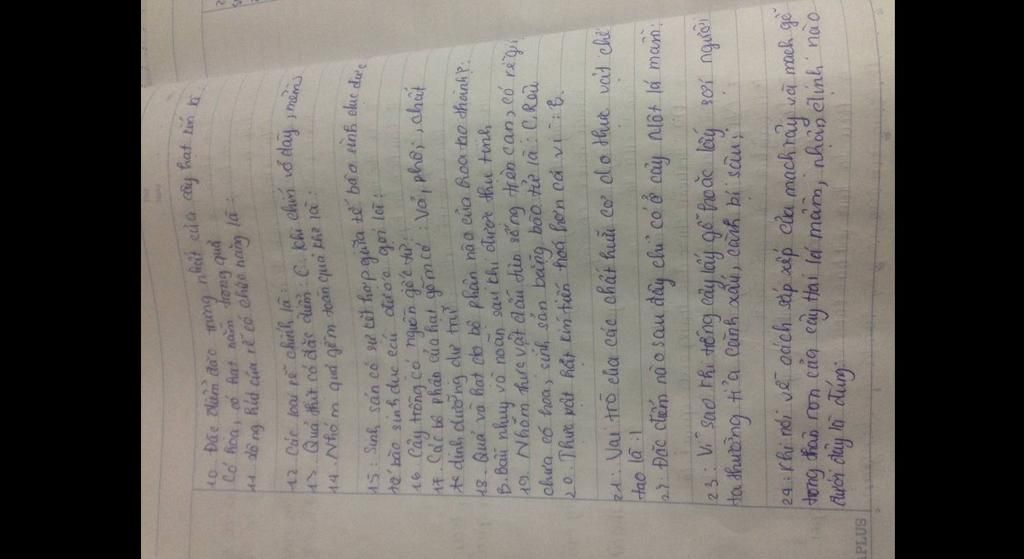 10. Đặc điểm đặc trưng nhất của cây hạt kín là
Có hoa, có hạt nằm trong quả
11. lông hút của rễ có chức năng là:
12. Các loại rễ chính là:
13. Quả thịt có đặc điểm: C. khi chín vỏ dày, mềm
14. Nhóm quả gồm toàn quả khô là:
15: Sinh sản có sự kết hợp giữa tế bào sinh dục đực
tế bào sinh dục cái được gọi là:
16. Cây trồng có nguồn gốc từ:
17. Các bộ phận của hạt gồm có: Vỏ, phôi, chất
dinh dưỡng dự trữ
18. Quả và hạt do bộ phận nào của hoa tạo thành?:
B. Bầu nhụy và noãn sau khi được thụ tinh
19. Nhóm thực vật đầu tiên sống trên cạn, có rễ giả
chưa có hoa, sinh sản bằng bào tử là: C. Rêu
20. Thực vật hạt kín tiến hoá hơn cả vì: B.
21. Vai trò của các chất hữu cơ do thực vật chế
tạo là:
22. Đặc điểm nào sau đây chỉ có ở cây Một lá mầm:
23: Vì sao khi trồng cây lấy gỗ hoặc lấy sợi người
ta thường tỉa cành xấu, cành bị sâu;
24: Khi nói về cách sắp xếp của mạch rây và mạch gỗ
trong thân non của cây Hai lá mầm, nhận định nào
dưới đây là đúng:
APLUS